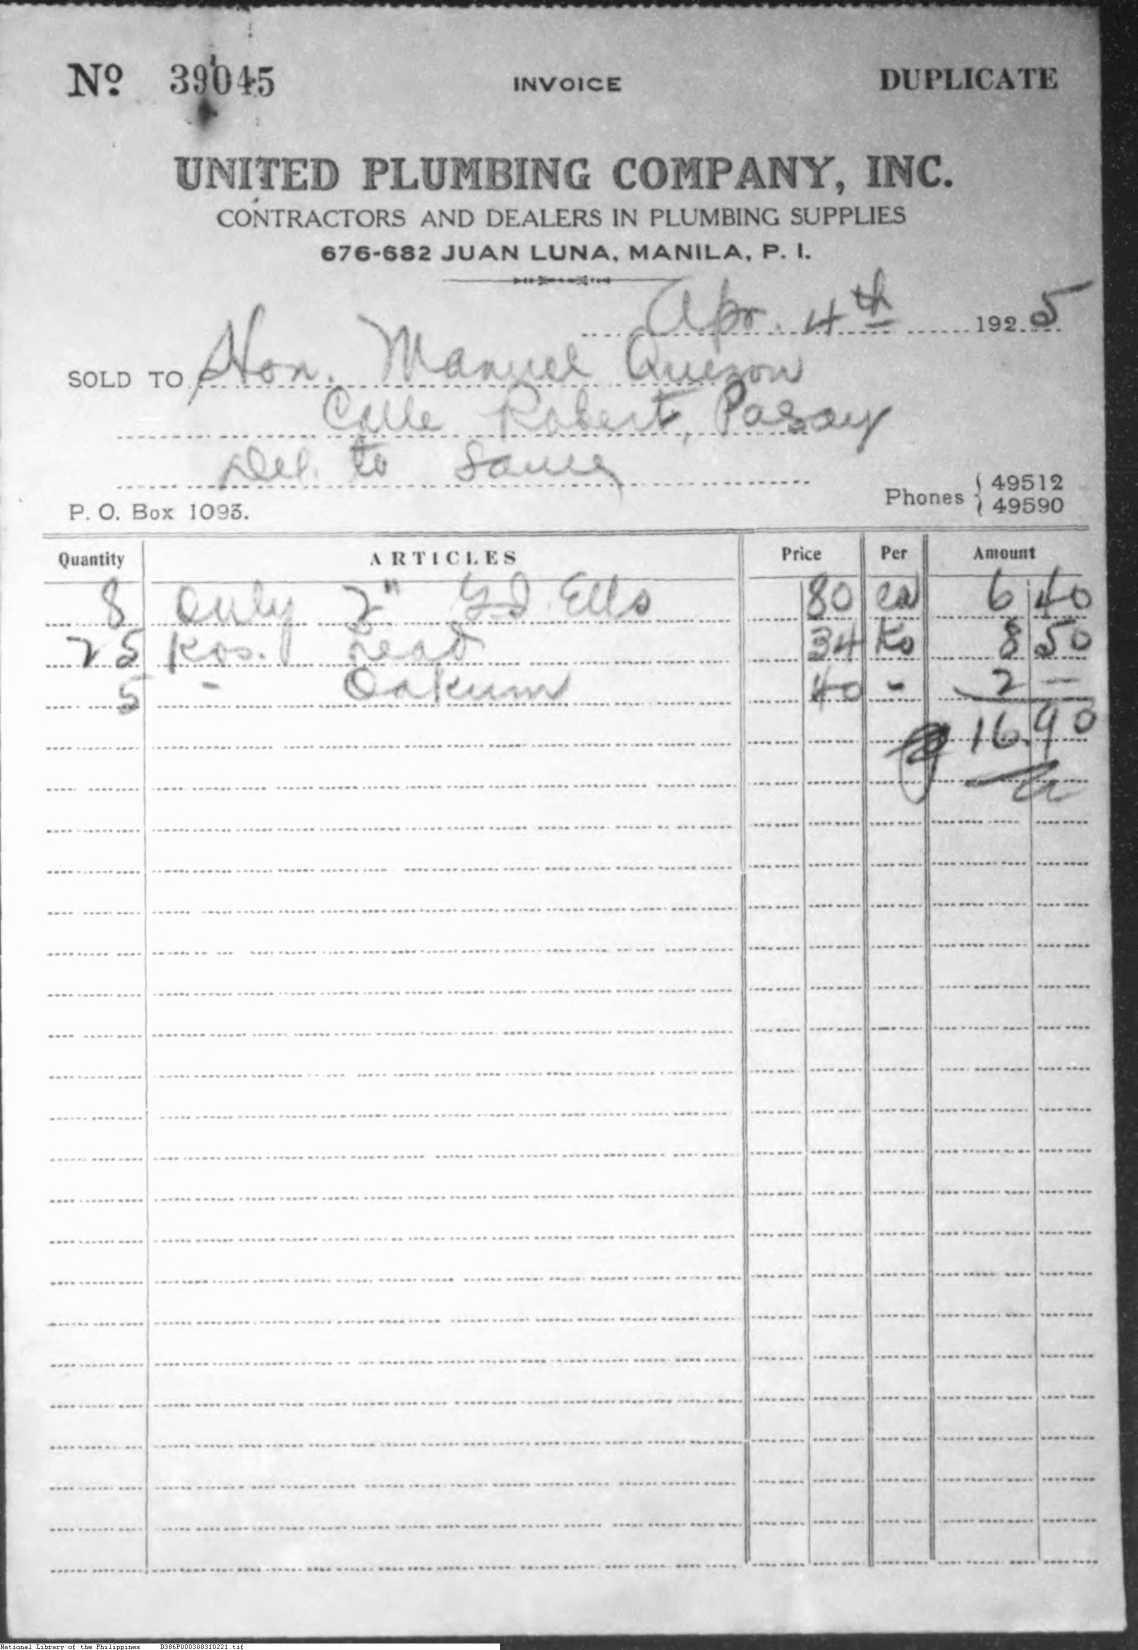 Nº 39045 INVOICE DUPLICATE
UNITED PLUMBING COMPANY, INC.
CONTRACTORS AND DEALERS IN PLUMBING SUPPLIES
676-682 JUAN LUNA, MANILA, P. I.
Apr. 4th 1925
SOLD TO Hon. Manuel Quezon
Calle Robert, Pasay
Del. to Same
P. O. Box 1093. Phones { 49512
{ 49590
Quantity ARTICLES Price Per Amount
8 only 2" G.I. Ells 80 ea 6 40
25 Kos. Lead 34 Ko 8 50
5 - Oakum 40 - 2 —
16.90
National Library of the Philippines D386P000300310221.tif